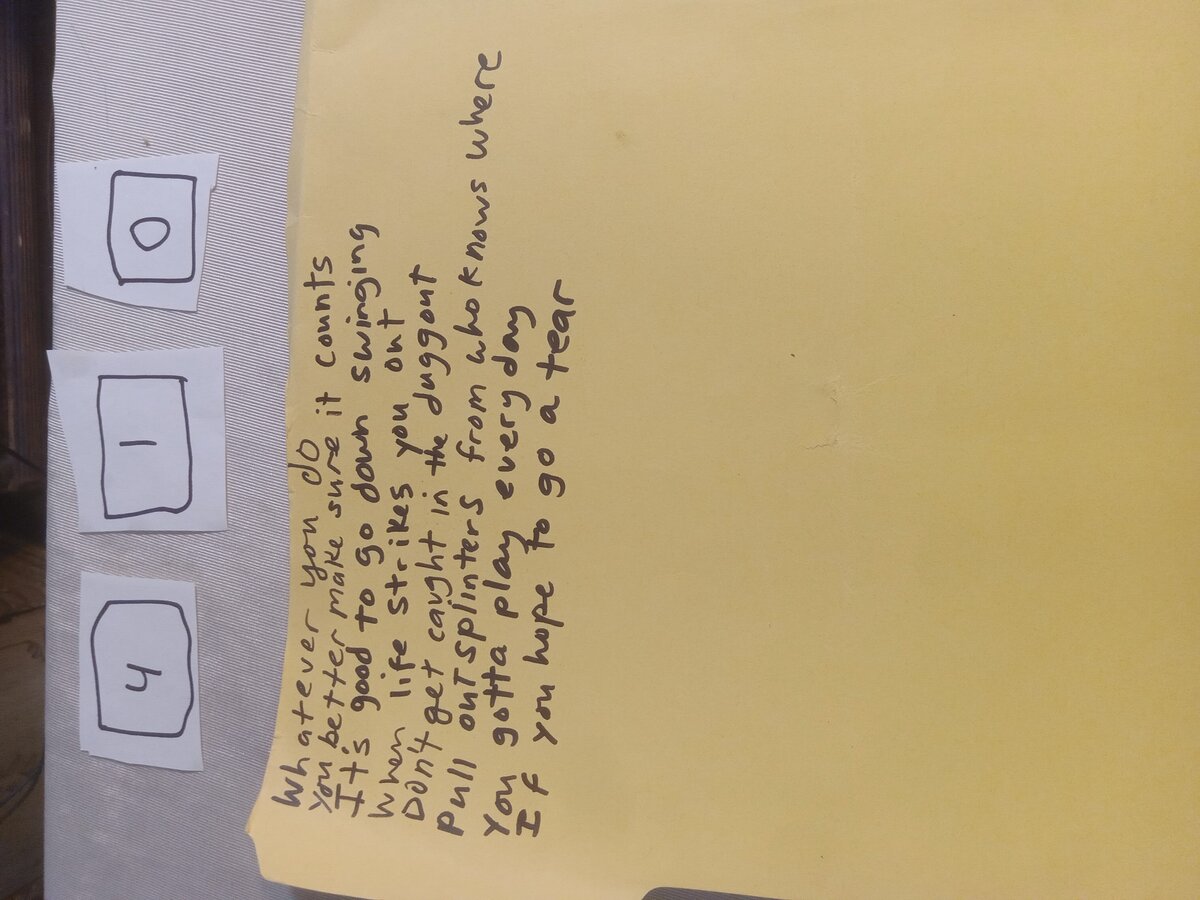 4 1 0
Whatever you do
You better make sure it counts
It's good to go down swinging
When life strikes you out
Don't get caught in the duggout
Pull out splinters from who knows where
You gotta play every day
If you hope to go a tear